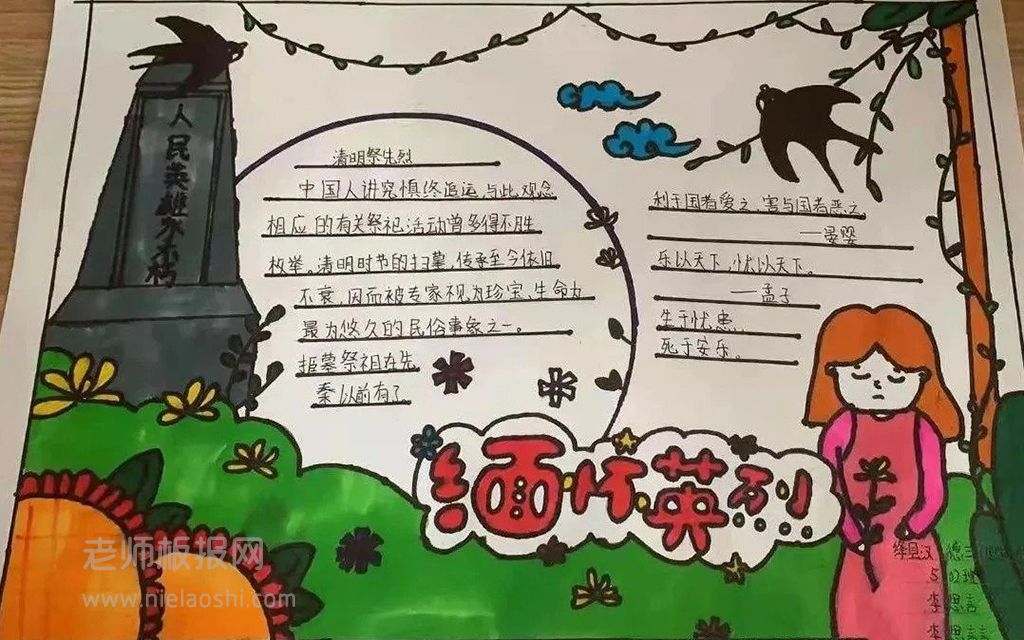 人民英雄永不朽
清明祭先烈
中国人讲究慎终追远,与此观念
相应,的有关祭祀活动曾多得不胜
枚举。清明时节的扫墓,传承至今依旧
不衰,因而被专家视为珍宝、生命力
最为悠久的民俗事象之一。
拒墓祭祖在先
秦以前有了
利于国者爱之,害与国者恶之
——晏婴
乐以天下,忧以天下。
——孟子
生于忧患
死于安乐。
缅怀英烈
5 02班
李思言
李思言
老师板报网
www.nielaoshi.com